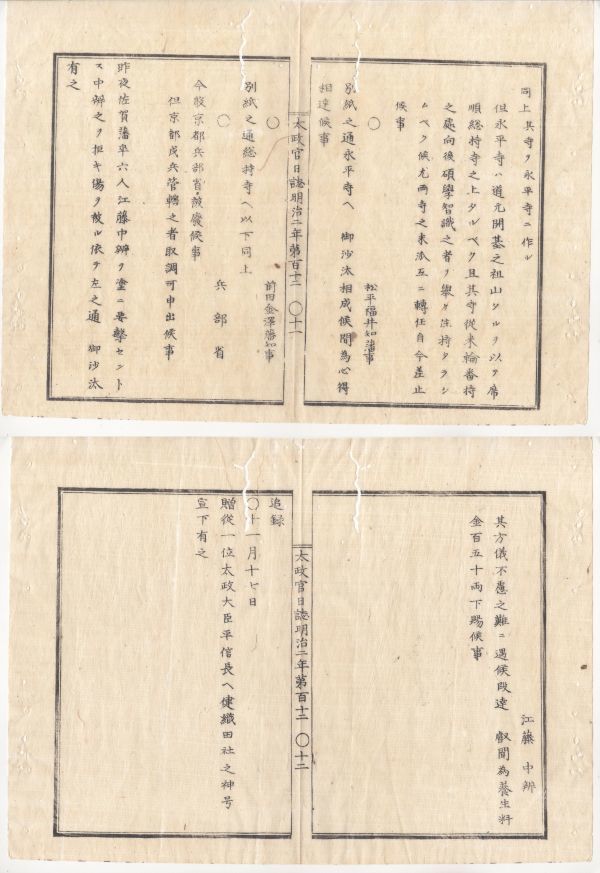 同上其寺ヲ永平寺ニ作ル
但永平寺ハ道元開基之祖山タルヲ以テ席
順総持寺之上タルベク且其寺従来輪番持
之處向後碩學智識之者ヲ舉ケ住持タラシ
ムベク候尤両寺之末派互ニ轉住自今差止
候事
〇
松平福井知藩事
別紙之通永平寺ヘ 御沙汰相成候間為心得
相達候事
太政官日誌明治二年第百十二 〇十一
〇
前田金澤藩知事
別紙之通総持寺ヘ以下同上
〇
兵部省
今般京都兵部省被廢候事
但京都戍兵管轄之者取調可申出候事
昨夜佐賀藩卒六人江藤中辨ヲ塗ニ要撃セント
ス中辨之ヲ拒キ傷ヲ被ル依テ左之通 御沙汰
有之
江藤中辨
其方儀不慮之難ニ遇候段達 叡聞為養生料
金百五十両下賜候事
太政官日誌明治二年第百十二 〇十二
追録
〇十一月十七日
贈従一位太政大臣平信長ヘ健織田社之神号
宣下有之